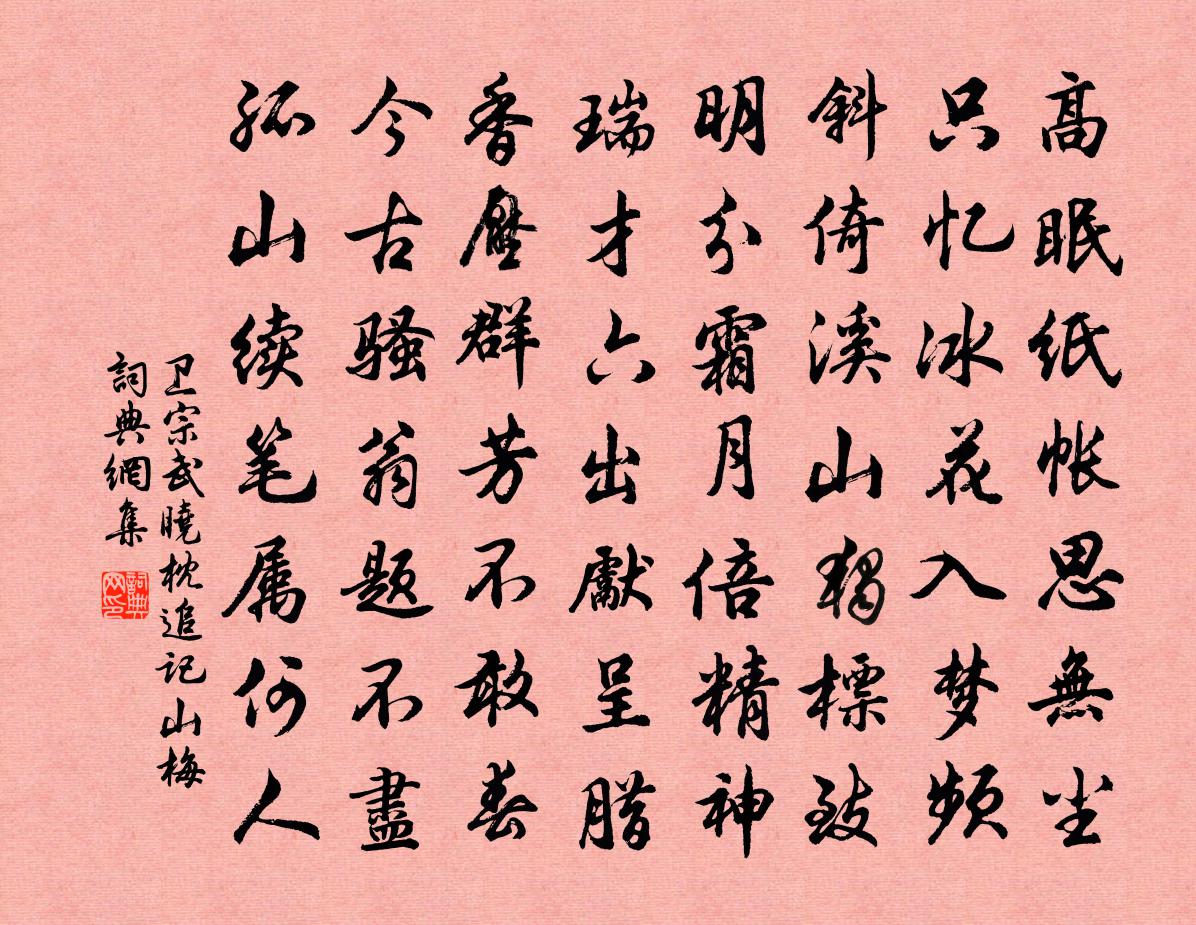 高眠纸帐思無尘
只忆冰花入梦频
斜倚溪山獨標致
明分霜月倍精神
瑞才六出獻呈腊
香壓群芳不敢春
今古骚翁题不盡
孤山续笔属何人
卫宗武曉枕追记山梅
詞典網集
詞典网印